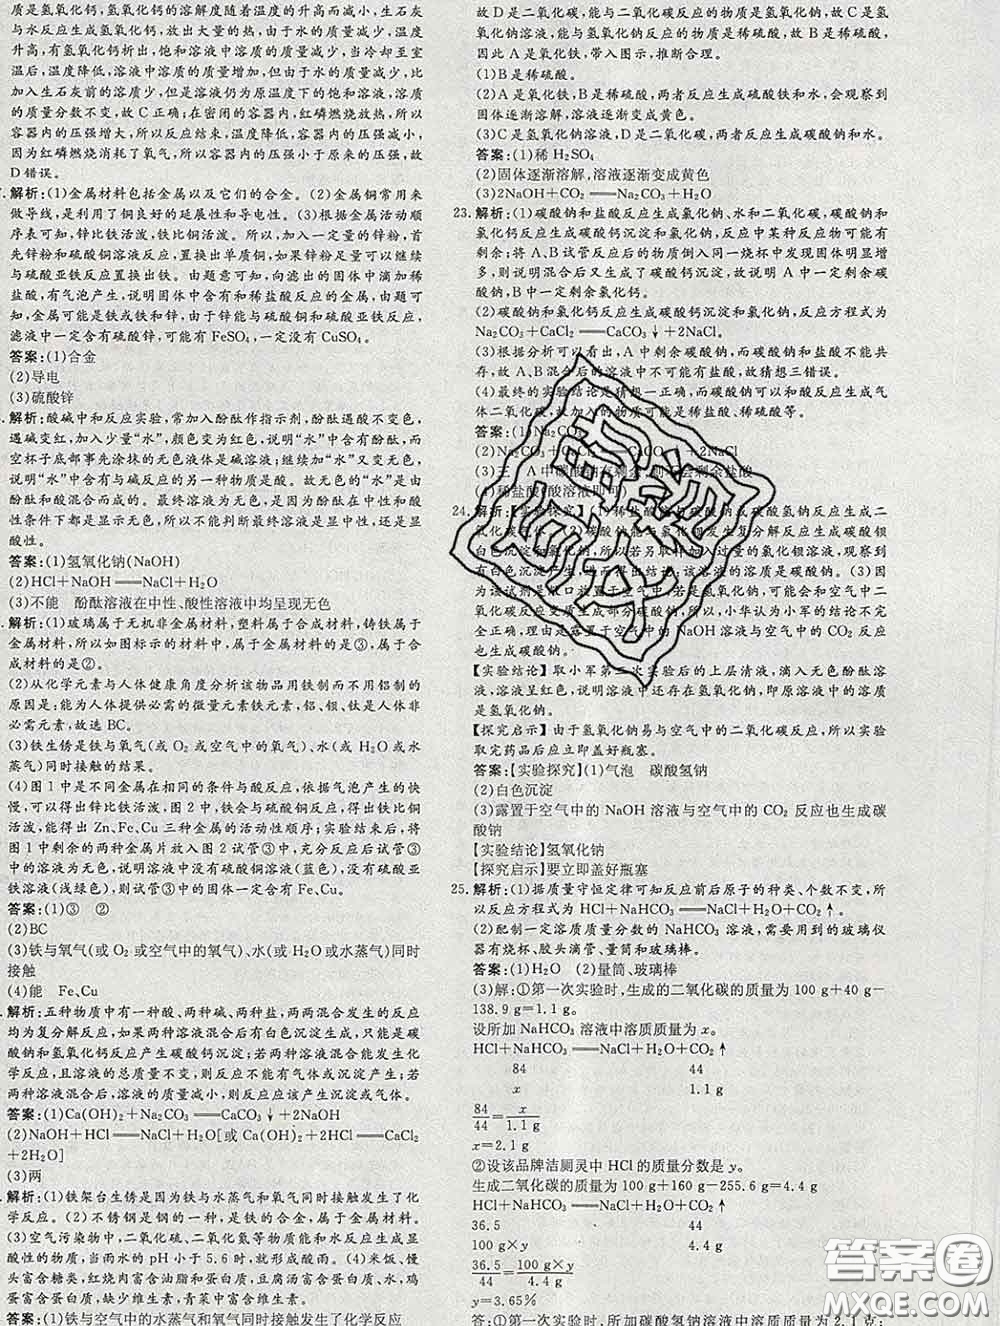 质是氢氧化钙,氢氧化钙的溶解度随着温度的升高而减小,生石灰
与水反应生成氢氧化钙,放出大量的热,由于水的质量减少,温度
升高,有氢氧化钙析出,饱和溶液中溶质的质量减少,当冷却至室
温后,温度降低,溶液中溶质的质量增加,但由于水的质量减少,比
加入生石灰前的溶质少,但是溶液仍为原温度下的饱和溶液,溶质
的质量分数不变,故C正确;在密闭的容器内,红磷燃烧放热,所以
容器内的压强增大,所以反应结束,温度降低,容器内的压强减小,
因为红磷燃烧消耗了氧气,所以容器内的压强小于原来的压强,故
D错误。
解析:(1)金属材料包括金属以及它们的合金。(2)金属铜常用来
做导线,是利用了铜良好的延展性和导电性。(3)根据金属活动顺
序表可知,锌比铁活泼,铁比铜活泼。所以,加入一定量的锌粉,首
先锌粉和硫酸铜溶液反应,置换出单质铜,如果锌粉足量可以继续
与硫酸亚铁反应置换出铁。由题意可知,向滤出的固体中滴加稀
盐酸,有气泡产生,说明固体中含有和稀盐酸反应的金属,由题可
知,金属可能是铁或铁和锌。由于锌能与硫酸铜和硫酸亚铁反应,
滤液中一定含有硫酸锌,可能有FeSO₄,一定没有CuSO₄。
答案:(1)合金
(2)导电
(3)硫酸锌
解析:酸碱中和反应实验,常加入酚酞作指示剂,酚酞遇酸不变色,
遇碱变红,加入少量“水”,颜色变为红色,说明“水”中含有酚酞,而
空杯子底部事先涂抹的无色液体是碱溶液;继续加“水”又变无色,
说明“水”中含有与碱反应的另一种物质是酸。故无色的“水”是由
酚酞和酸混合而成的。最终溶液为无色,是因为酚酞在中性和酸
性条件下都是显示无色,所以不能判断最终溶液是显中性,还是显
酸性。
答案:(1)氢氧化钠(NaOH)
(2)HCl+NaOH══NaCl+H₂O
(3)不能 酚酞溶液在中性、酸性溶液中均呈现无色
解析:(1)玻璃属于无机非金属材料,塑料属于合成材料,铸铁属于
金属材料,所以如图标示的材料中,属于金属材料的是③,属于合
成材料的是②。
(2)从化学元素与人体健康角度分析该物品用铁制而不用铝制的
原因是;能为人体提供必需的微量元素铁元素,铝、钡、钛是人体非
必需元素,故选BC。
(3)铁生锈是铁与氧气(或O₂或空气中的氧气)、水(或H₂O或水
蒸气)同时接触的结果。
(4)图1中是不同金属在相同的条件下与酸反应,依据气泡产生的快
慢,可以得出锌比铁活泼,图2中,铁会与硫酸铜反应,得出铁比铜
活泼,能得出Zn、Fe、Cu三种金属的活动性顺序;实验结束后,将
图1中剩余的两种金属片放入图2试管③中,充分反应后试管③
中的溶液为无色,说明溶液中没有硫酸铜溶液(蓝色),没有硫酸亚
铁溶液(浅绿色),则试管③中的固体一定含有Fe、Cu。
答案:(1)③ ②
(2)BC
(3)铁与氧气(或O₂或空气中的氧气)、水(或H₂O或水蒸气)同时
接触
(4)能 Fe、Cu
解析:五种物质中有一种酸、两种碱、两种盐,两两混合发生的反应
均为复分解反应,如果两种溶液混合后有白色沉淀生成,只能是碳
酸钠和氢氧化钙反应产生碳酸钙沉淀;若两种溶液混合能发生化
学反应,且溶液的总质量不变,则反应不能有气体或沉淀产生;若
两种溶液混合后,溶液的质量减小,则反应应该产生沉淀或气体。
答案:(1)Ca(OH)₂+Na₂CO₃══CaCO₃↓+2NaOH
(2)NaOH+HCl══NaCl+H₂O[或Ca(OH)₂+2HCl══CaCl₂
+2H₂O]
(3)两
解析:(1)铁架台生锈是因为铁与水蒸气和氧气同时接触发生了化
学反应。(2)不锈钢是钢的一种,是铁的合金,属于金属材料。
(3)空气污染物中,二氧化硫、二氧化氮等物质能与水反应生成显
酸性的物质,当雨水的pH小于5.6时,就形成酸雨。(4)米饭、馒
头富含糖类,红烧肉富含油脂和蛋白质,豆腐汤富含蛋白质、水,鸡
蛋富含蛋白质,缺少维生素,青菜中富含维生素。
答案:(1)铁与空气中的水蒸气和氧气同时接触发生了化学反应
故D是二氧化碳,能与二氧化碳反应的物质是氢氧化钠,故C是氢
氧化钠溶液,能与氢氧化钠反应的物质是稀硫酸,故B是稀硫酸,
因此A是氧化铁,带入图示,推断合理。
(1)B是稀硫酸。
(2)A是氧化铁,B是稀硫酸,两者反应生成硫酸铁和水,会观察到
固体逐渐溶解,溶液逐渐变成黄色。
(3)C是氢氧化钠溶液,D是二氧化碳,两者反应生成碳酸钠和水。
答案:(1)稀H₂SO₄
(2)固体逐渐溶解,溶液逐渐变成黄色
(3)2NaOH+CO₂══Na₂CO₃+H₂O
23.解析:(1)碳酸钠和盐酸反应生成氯化钠、水和二氧化碳,碳酸钠和
氯化钙反应生成碳酸钙沉淀和氯化钠,反应中某种反应物可能有
剩余;将A、B试管反应后的物质倒入同一烧杯中发现固体明显增
多,则说明混合后又生成了碳酸钙沉淀,故说明A中一定剩余碳
酸钠,B中一定剩余氯化钙。
(2)碳酸钠和氯化钙反应生成碳酸钙沉淀和氯化钠,反应方程式为
Na₂CO₃+CaCl₂══CaCO₃↓+2NaCl。
(3)根据分析可以看出,A中剩余碳酸钠,而碳酸钠和盐酸不能共
存,故A、B混合后的溶液中不可能有盐酸,故猜想三错误。
(4)最终的实验结论是猜想一正确,而碳酸钠可以和酸反应生成气
体二氧化碳,故加入的物质可能是稀盐酸、稀硫酸等。
答案:(1)Na₂CO₃
(2)Na₂CO₃+CaCl₂══CaCO₃↓+2NaCl
(3)三 A中碳酸钠有剩余,则不会剩余盐酸
(4)稀盐酸(酸溶液即可)
24.解析:【实验探究】(1)稀盐酸能与碳酸钠或碳酸氢钠反应生成二
氧化碳气体。(2)碳酸钠能与氯化钡发生复分解反应生成碳酸钡
白色沉淀和氯化钠,所以若另取样加入过量的氯化钡溶液,观察到
有白色沉淀产生,从而得出结论:该溶液的溶质是碳酸钠。(3)因
为该试剂是敞口放置于空气中,若是氢氧化钠,可能会和空气中的二
氧化碳反应变质生成碳酸钠,所以,小华认为小军的结论不完
全正确,理由是露置于空气中的NaOH溶液与空气中的CO₂反应
也生成碳酸钠。
【实验结论】取小军第二次实验后的上层清液,滴入无色酚酞溶
液,溶液呈红色,说明溶液中还存在氢氧化钠,即原溶液中的溶质
是氢氧化钠。
【探究启示】由于氢氧化钠易与空气中的二氧化碳反应,所以实验
取完药品后应立即盖好瓶塞。
答案:【实验探究】(1)气泡 碳酸氢钠
(2)白色沉淀
(3)露置于空气中的NaOH溶液与空气中的CO₂反应也生成碳
酸钠
【实验结论】氢氧化钠
【探究启示】要立即盖好瓶塞
25.解析:(1)据质量守恒定律可知反应前后原子的种类、个数不变,所
以反应方程式为HCl+NaHCO₃══NaCl+H₂O+CO₂↑。
(2)配制一定溶质质量分数的NaHCO₃溶液,需要用到的玻璃仪
器有烧杯、胶头滴管、量筒和玻璃棒。
答案:(1)H₂O (2)量筒、玻璃棒
(3)解:①第一次实验时,生成的二氧化碳的质量为100 g+40 g-
138.9 g=1.1 g。
设所加NaHCO₃溶液中溶质质量为x。
HCl+NaHCO₃══NaCl+H₂O+CO₂↑
84 44
x 1.1 g
84/44=x/1.1 g
x=2.1 g
②设该品牌洁厕灵中HCl的质量分数是y。
生成二氧化碳的质量为100 g+160 g-255.6 g=4.4 g
HCl+NaHCO₃══NaCl+H₂O+CO₂↑
36.5 44
100 g×y 4.4 g
36.5/44=100 g×y/4.4 g
y=3.65%
答:①第一次实验时,所加碳酸氢钠溶液中溶质的质量为2.1克;
答案圈
MXQE.COM